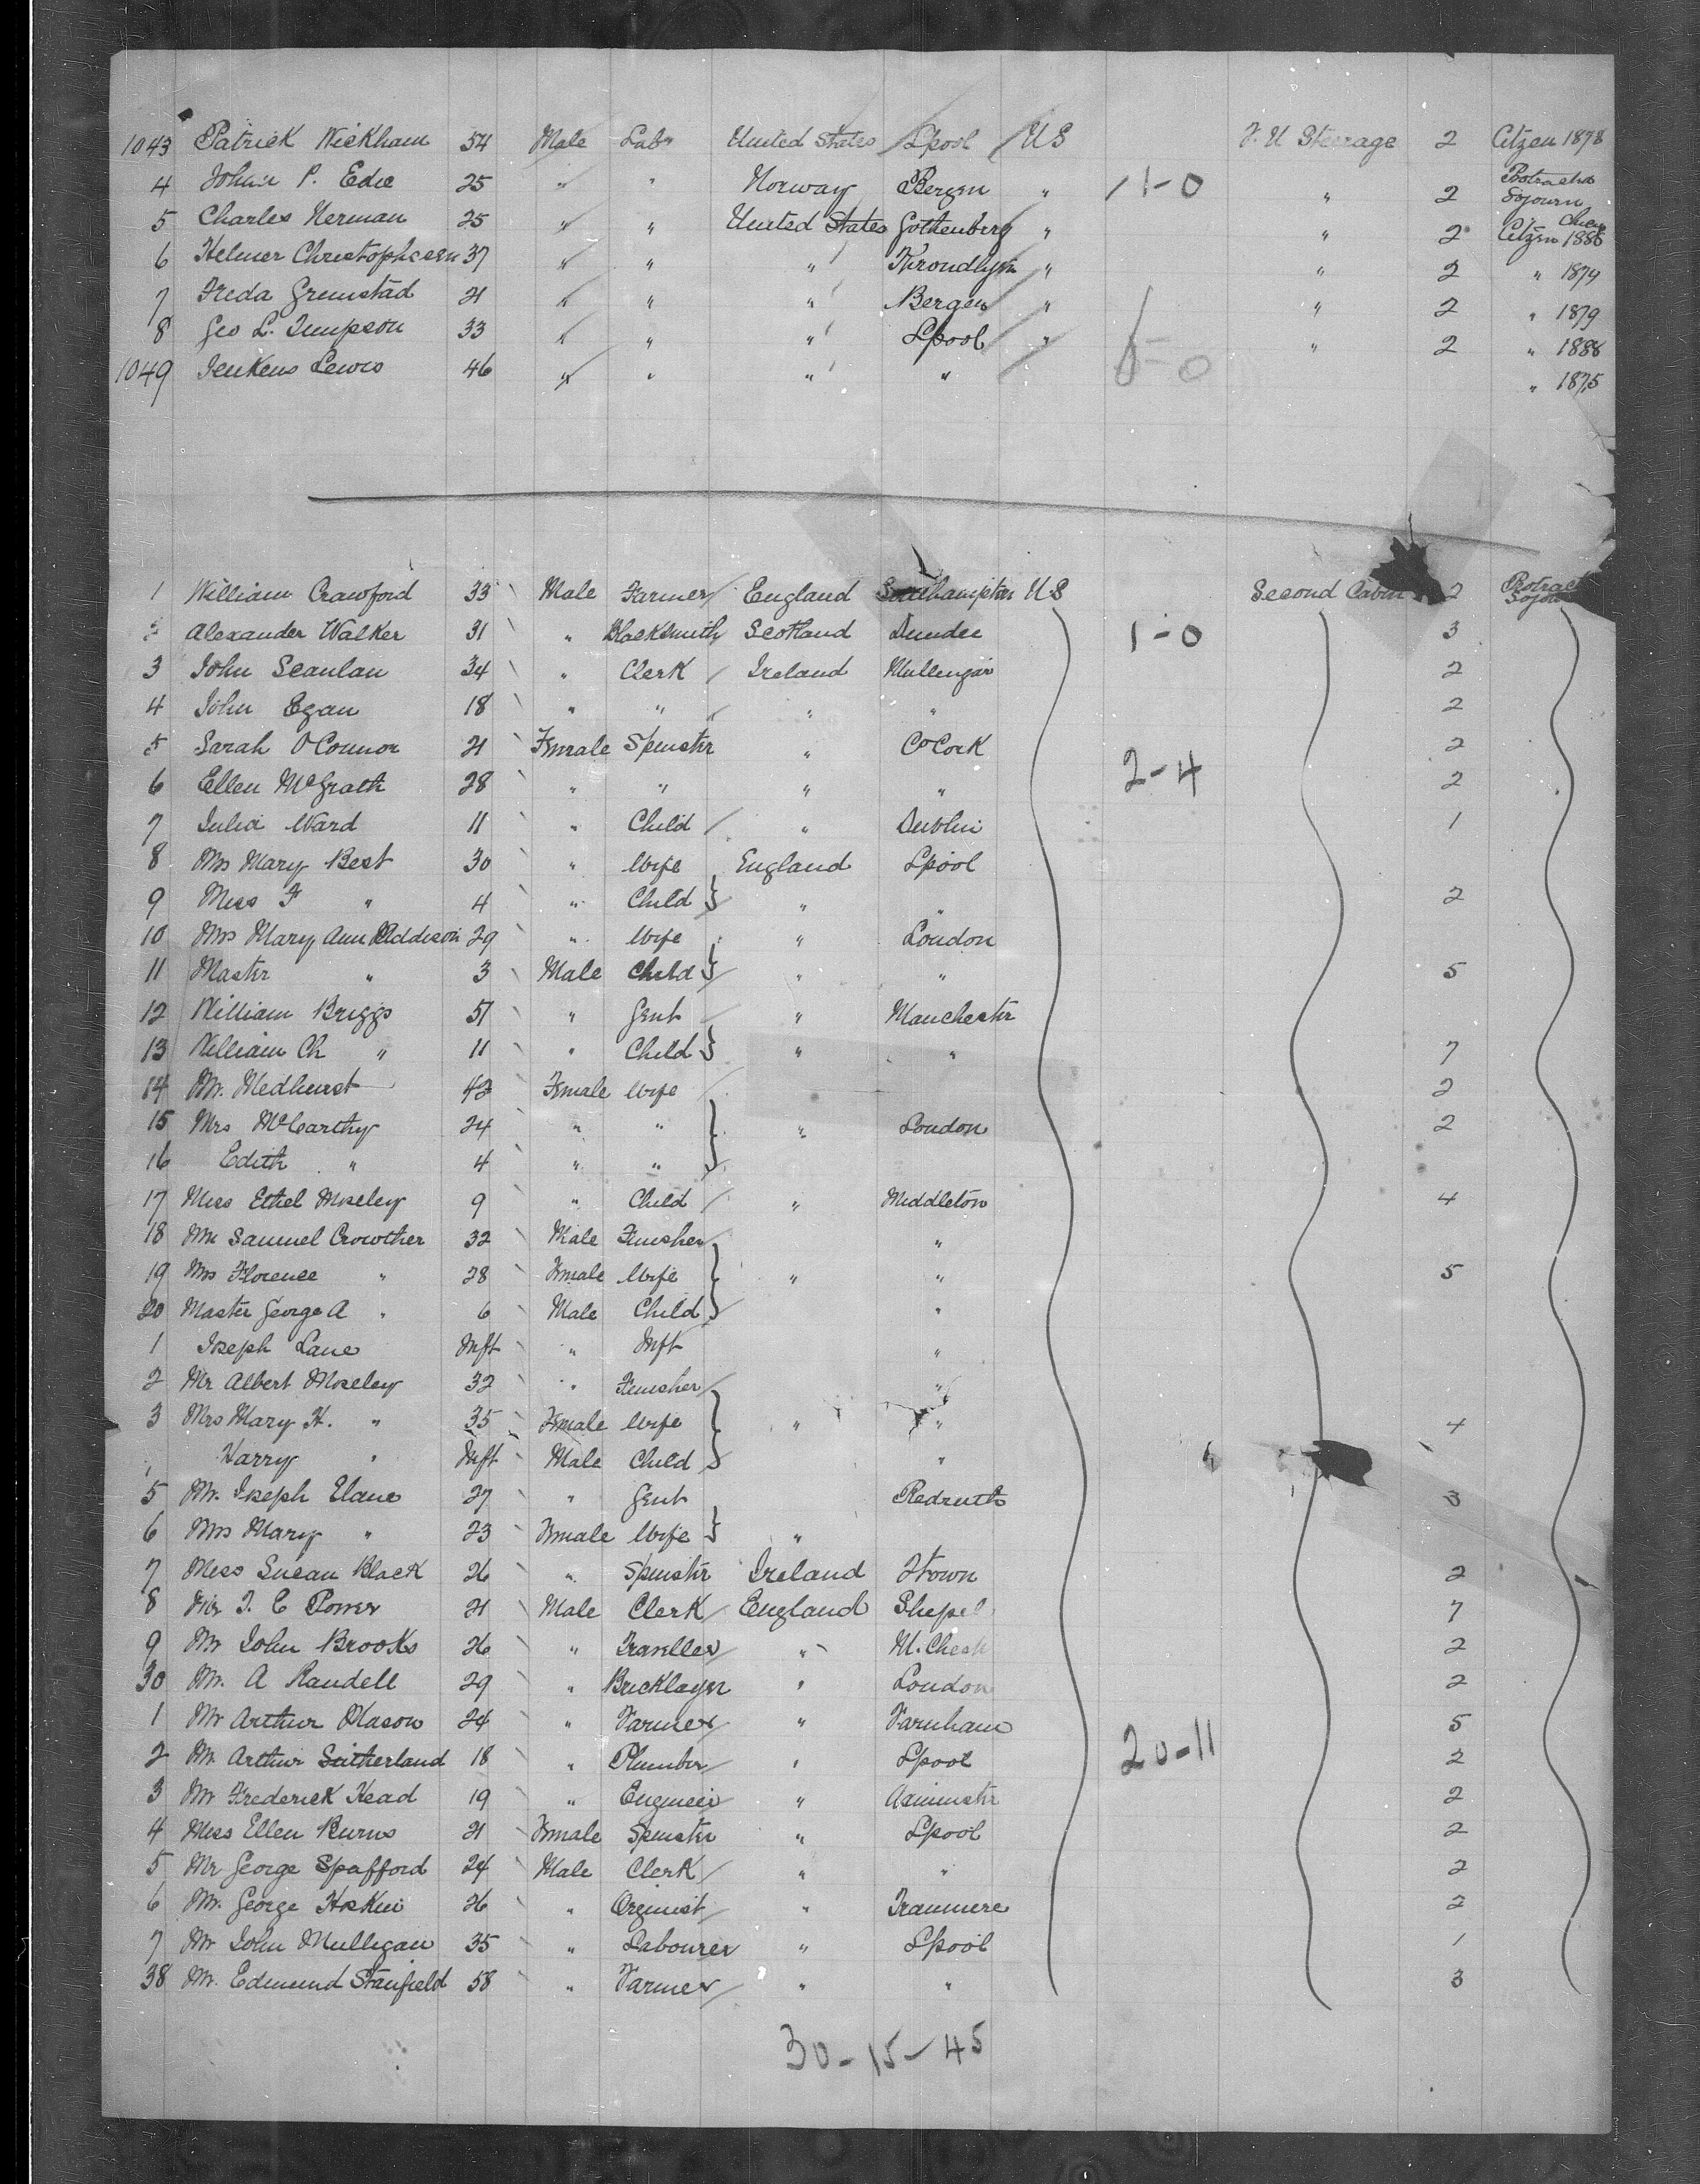 1043 Patrick Wickham 54 Male Labr United States Lpool US F. U Steerage 2 Citzen 1878
4 Johan P. Edie 25 " " Norway Bergen " 1-0 " 2 Protracted Sojourn
5 Charles Herman 25 " " United States Gothenberg " " 2 Citzen 1886
6 Helmer Christophersen 37 " " " " " 2 " 1879
7 Freda Grimstad 21 " " " Bergen " " 2 " 1879
8 Geo L. Timpson 33 " " " Lpool " " 2 " 1888
1049 Jenkens Lewis 46 " " " " 6-0 " 1875
1 William Crawford 33 Male Farmer England Southampton US Second Cabin 2 Protract Sojou
2 Alexander Walker 31 " Blacksmith Scotland Dundee 1-0 3
3 John Scanlan 34 " Clerk Ireland Mullengar 2
4 John Egan 18 " " " " 2
5 Sarah O'Connor 21 Female Spinster " Co Cork 2
6 Ellen McGrath 28 " " " " 2-4 2
7 Julia Ward 11 " Child " Dublin 1
8 Mrs Mary Best 30 " Wife England Lpool
9 Miss F " 4 " Child " " 2
10 Mrs Mary Ann Addison 29 " Wife " London
11 Master " 3 Male Child " " 5
12 William Briggs 51 " Gent " Manchester
13 William Ch " 11 " Child " " 7
14 Mr. Medhurst 42 Female Wife 2
15 Mrs McCarthy 24 " " " London 2
16 Edith " 4 " "
17 Miss Ethel Moseley 9 " Child " Middleton 4
18 Mr Samuel Crowther 32 Male Finisher "
19 Mrs Florence " 28 Female Wife " " 5
20 Master George A " 6 Male Child "
1 Joseph Lane Inft " Inft "
2 Mr Albert Moseley 32 " Finisher "
3 Mrs Mary H. " 35 Female Wife " " 4
Harry " Inft Male Child "
5 Mr. Joseph Elane 27 " Gent Redruth 3
6 Mrs Mary " 23 Female Wife "
7 Miss Susan Black 26 " Spinstr Ireland 2
8 Mr T. C Power 21 Male Clerk England 7
9 Mr John Brooks 26 " Traveller " M. Chest 2
30 Mr. A Randell 29 " Bricklayer " London 2
1 Mr Arthur Mason 24 " Farmer " Farnham 5
2 Mr. Arthur Sutherland 18 " Plumber " Lpool 20-11 2
3 Mr Frederick Head 19 " Engineer " Axminster 2
4 Miss Ellen Burns 21 Female Spinster " Lpool 2
5 Mr George Spafford 24 Male Clerk " " 2
6 Mr. George Hoskin 26 " Orginist " Tranmere 2
7 Mr John Mulligan 35 " Labourer " Lpool 1
38 Mr. Edmund Stanfield 58 " Farmer " " 3
30-15-45